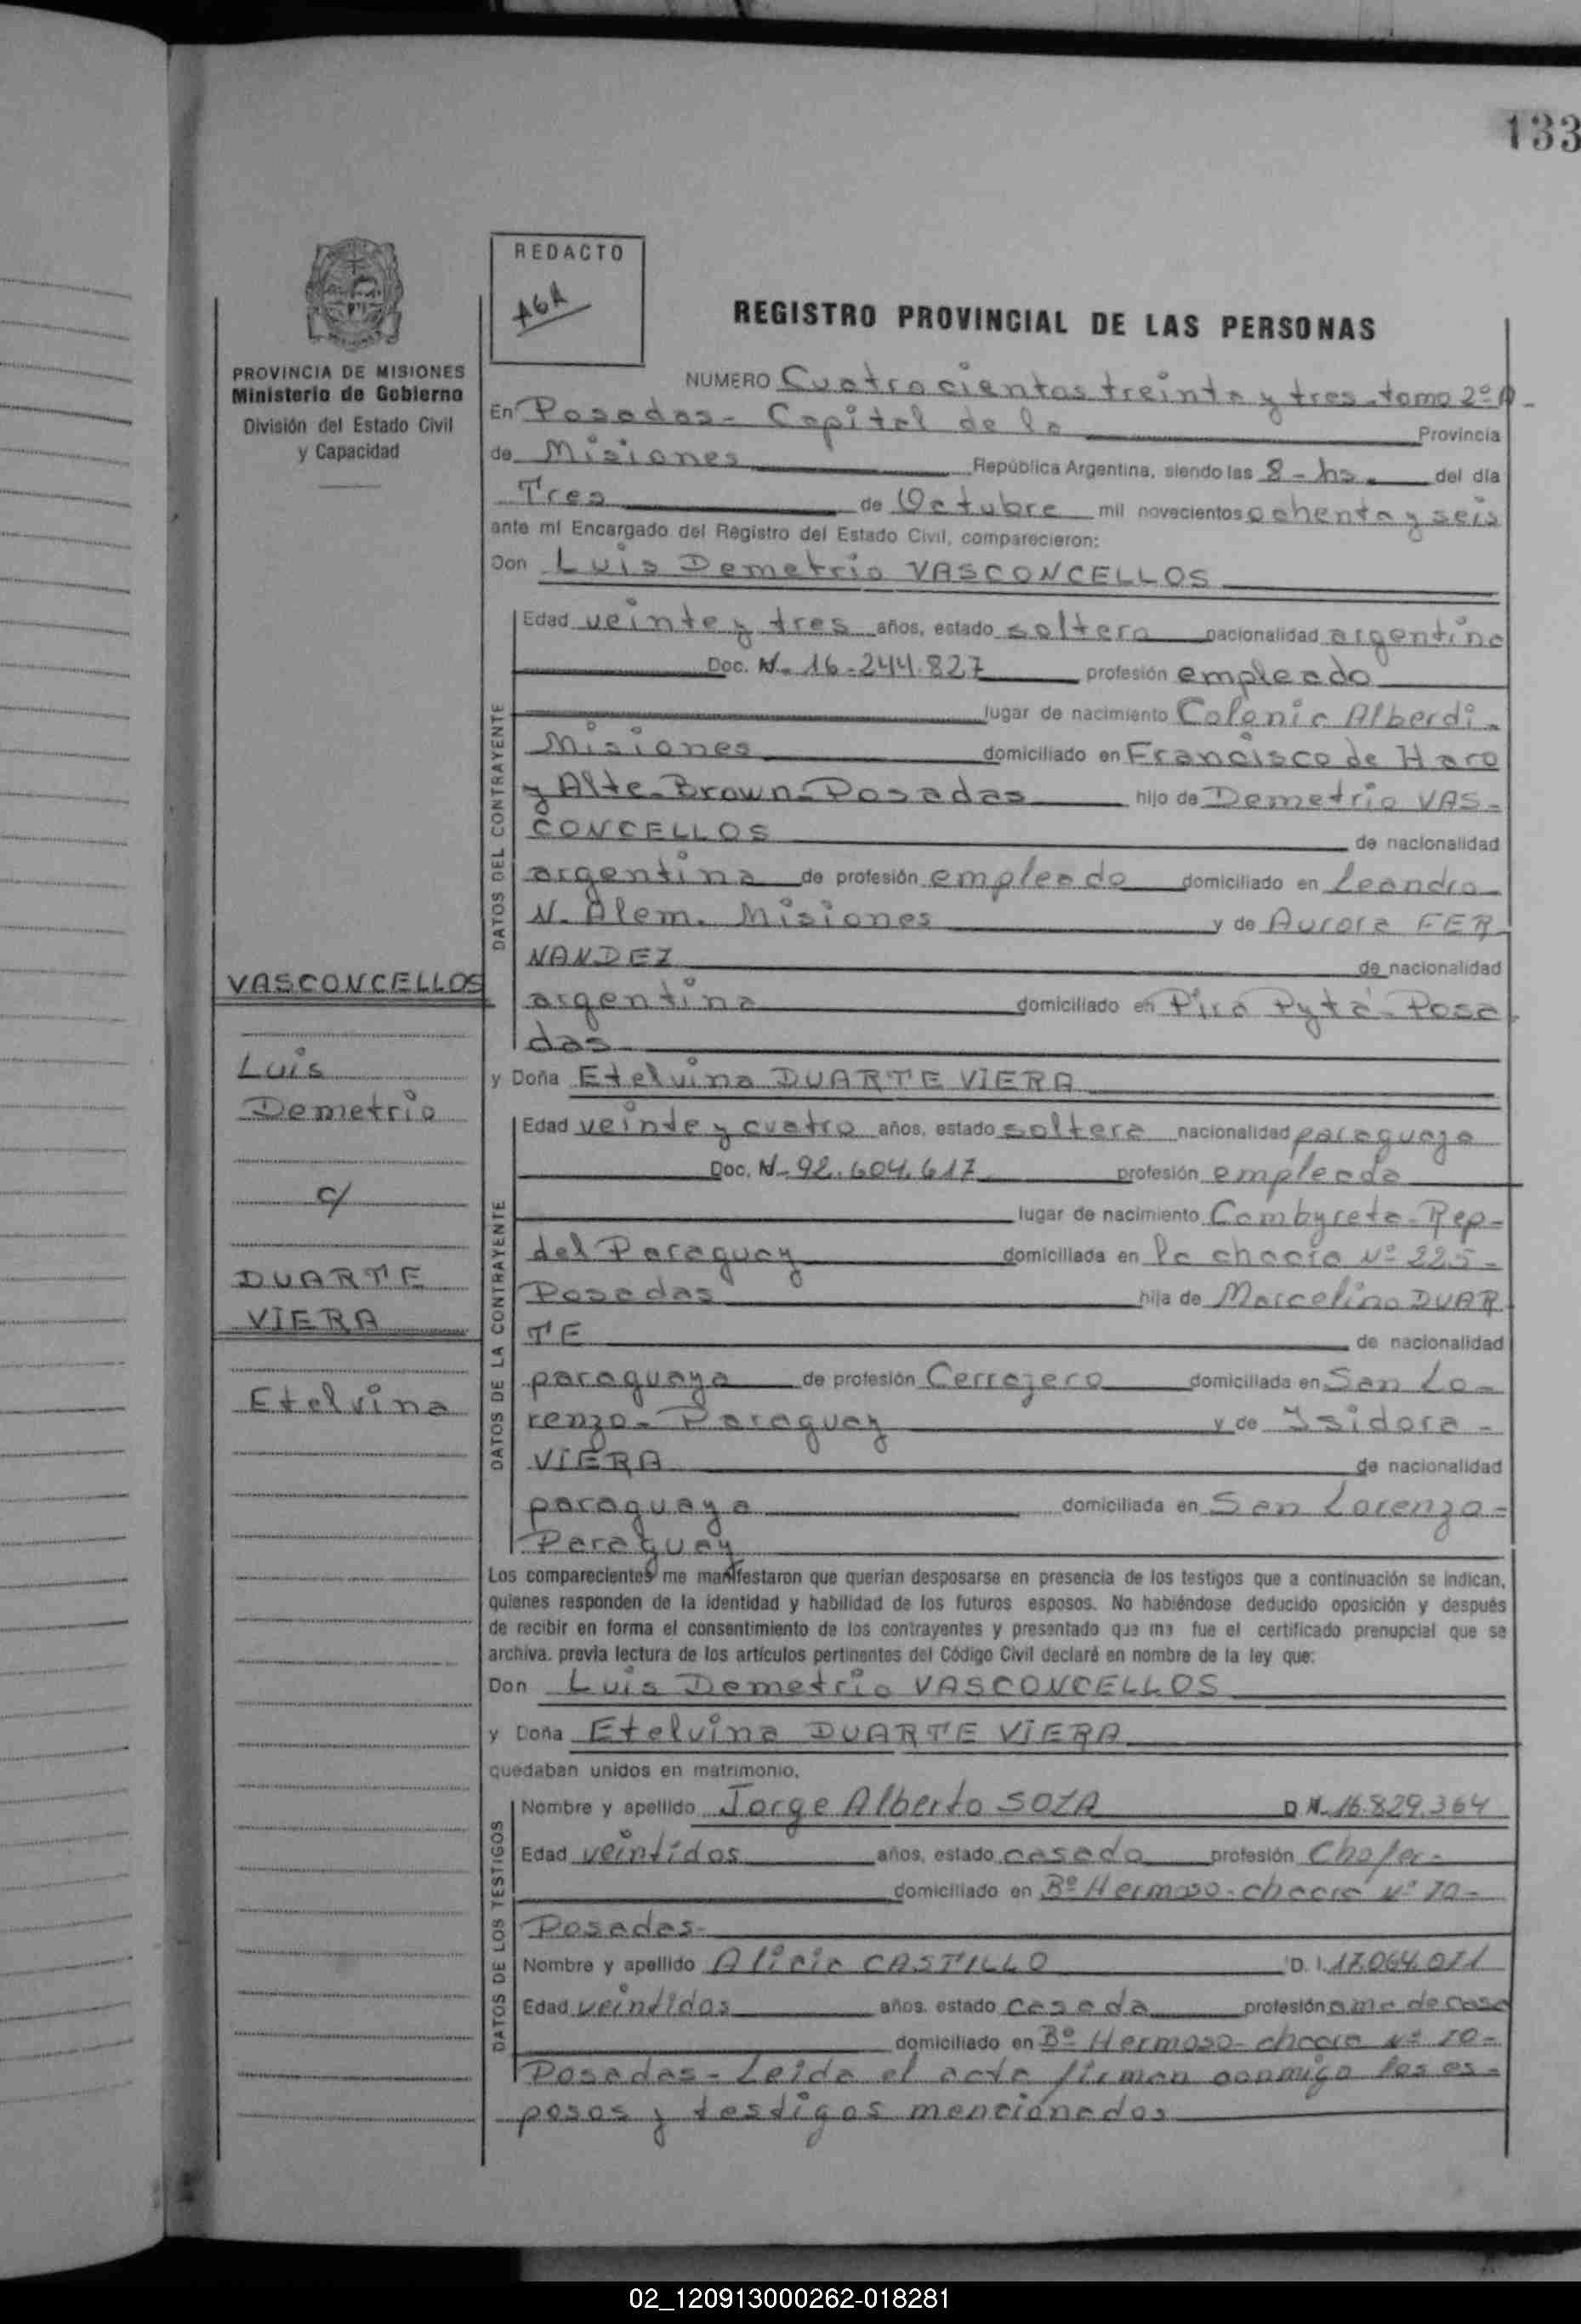 133
REDACTO
AGA
PROVINCIA DE MISIONES
Ministerio de Gobierno
División del Estado Civil
y Capacidad
REGISTRO PROVINCIAL DE LAS PERSONAS
NUMERO Cuatrocientos treinta y tres - tomo 2º A -
En Posadas - Capital de la Provincia
de Misiones República Argentina, siendo las 8 - hs. del día
Tres de Octubre mil novecientos ochenta y seis
ante mí Encargado del Registro del Estado Civil, comparecieron:
Don Luis Demetrio VASCONCELLOS
DATOS DEL CONTRAYENTE
Edad veinte y tres años, estado soltero nacionalidad argentina
Doc. N- 16-244.827 profesión empleado
lugar de nacimiento Colonia Alberdi -
Misiones domiciliado en Francisco de Haro
y Alte. Brown - Posadas hijo de Demetrio VAS-
CONCELLOS de nacionalidad
argentina de profesión empleado domiciliado en Leandro
N. Alem. Misiones y de Aurora FER
NANDEZ de nacionalidad
argentina domiciliado en Pira Pytá - Posa
das
y Doña Etelvina DUARTE VIERA
DATOS DE LA CONTRAYENTE
Edad veinte y cuatro años, estado soltera nacionalidad paraguaya
Doc. N- 92.604.617 profesión empleada
lugar de nacimiento Cambyreta - Rep -
del Paraguay domiciliada en la chacra Nº 225 -
Posadas hija de Marcelino DUAR
TE de nacionalidad
paraguaya de profesión Cerrajero domiciliada en San Lo -
renzo - Paraguay y de Isidora -
VIERA de nacionalidad
paraguaya domiciliada en San Lorenzo -
Paraguay
Los comparecientes me manifestaron que querían desposarse en presencia de los testigos que a continuación se indican,
quienes responden de la identidad y habilidad de los futuros esposos. No habiéndose deducido oposición y después
de recibir en forma el consentimiento de los contrayentes y presentado que me fue el certificado prenupcial que se
archiva, previa lectura de los artículos pertinentes del Código Civil declaré en nombre de la ley que:
Don Luis Demetrio VASCONCELLOS
y Doña Etelvina DUARTE VIERA
quedaban unidos en matrimonio.
DATOS DE LOS TESTIGOS
Nombre y apellido Jorge Alberto SOZA D N- 16.829.364
Edad veintidos años, estado casado profesión Chofer -
domiciliado en Bº Hermoso - chacra Nº 10 -
Posadas -
Nombre y apellido Alicia CASTILLO D. I. 17.064.071
Edad veintidos años, estado casada profesión ama de casa
domiciliado en Bº Hermoso - chacra Nº 10 -
Posadas - Leida el acta firman conmigo los es -
posos y testigos mencionados
VASCONCELLOS
Luis
Demetrio
c/
DUARTE
VIERA
Etelvina
02_120913000262-018281